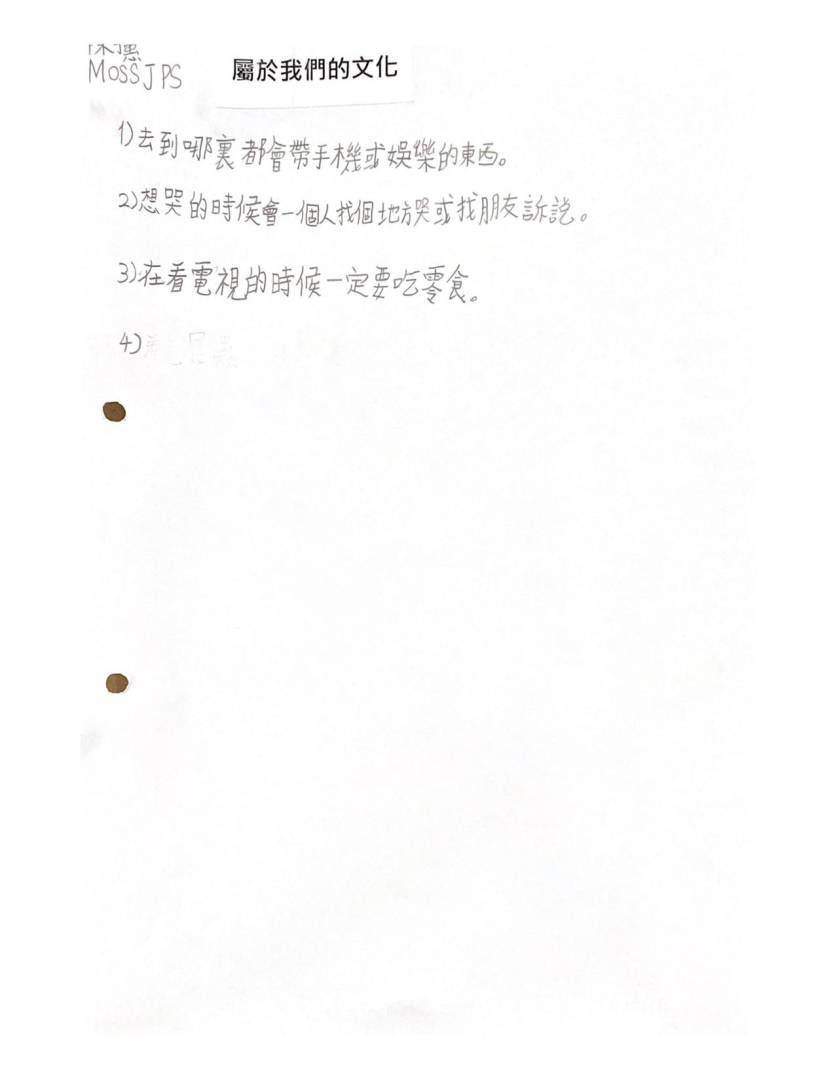 MossJPS
屬於我們的文化
1)去到哪裏都會帶手機或娛樂的東西。
2)想哭的時候會一個人找個地方哭或找朋友訴說。
3)在看電視的時候一定要吃零食。
4)